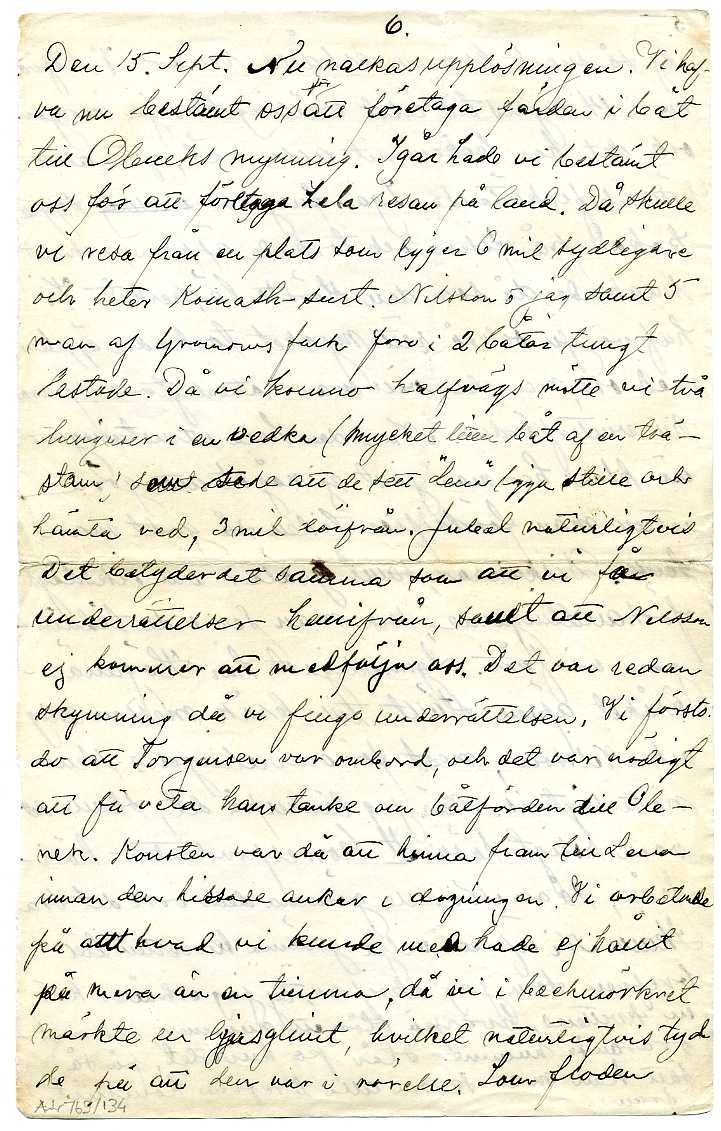 6.
Den 15. Sept. Nu nalkas upplösningen. Vi haf-
va nu bestämt oss för att företaga färden i båt
till Oleneks mynning. Igår hade vi bestämt
oss för att företaga hela resan på land. Då skulle
vi resa från en plats som ligger 6 mil sydligare
och heter Kumash-surt. Nilsson o jag samt 5
man af Gromows folk foro i 2 båtar tungt
lestade. Då vi kommo halfvägs mötte vi två
tunguser i en vedka (mycket liten båt af en trä-
stam) som sade att de sett "Lena" ligga stilla och
hämta ved, 3 mil därifrån. Jubel naturligtvis
Det betyder det samma som att vi få
underrättelser hemifrån, samt att Nilsson
ej kommer att medfölja oss. Det var redan
skymning då vi fingo underrättelsen. Vi försto-
do att Torgersen var ombord, och det var nödigt
att få veta hans tanke om båtfärden till Ole-
nek. Konsten var då att hinna fram till Lena
innan den hissade ankar i dagningen. Vi arbetade
på allt hvad vi kunde men hade ej hållit
på mera än en timma, då vi i beckmörkret
märkte en ljusglimt, hvilket naturligtvis tyd
de på att den var i rörelse. Som floden
A-Lr 763/134